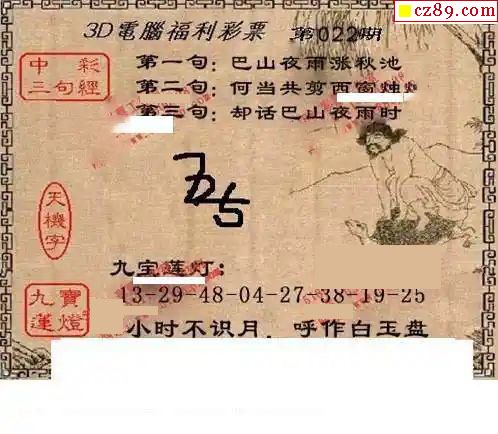 cz89.com
3D電腦福利彩票 第022期
中彩
三句經
第一句：巴山夜雨涨秋池
第二句：何当共剪西窗烛
第三句：却话巴山夜雨时
天機字
九宝莲灯：
九寶蓮燈
13-29-48-04-27-38-19-25
小时不识月，呼作白玉盘